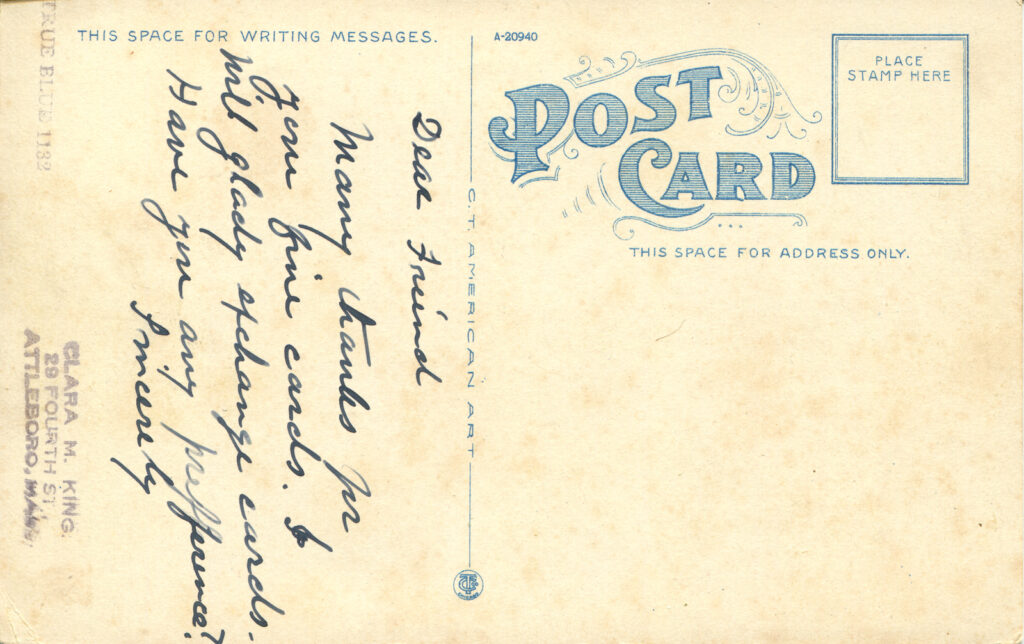 THIS SPACE FOR WRITING MESSAGES.
TRUE BLUE 1132
Dear Freind
Many thanks for
Your fine cards. I
will glady exchange cards-
Have you any prefference?
Sincerely
CLARA M. KING
29 FOURTH ST.,
ATTLEBORO, MASS.
C.T. AMERICAN ART
A-20940
POST
CARD
PLACE
STAMP HERE
THIS SPACE FOR ADDRESS ONLY.